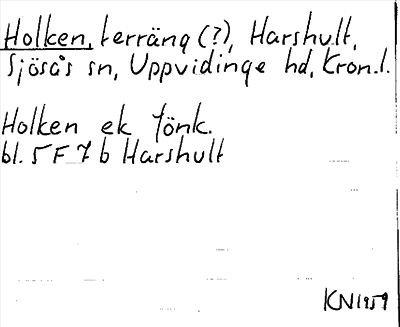 Holken, terräng (?), Harshult,
Sjösås sn, Uppvidinge hd, Kron.l.
Holken ek fönk.
bl. 5 F 7 b Harshult
KN 1959